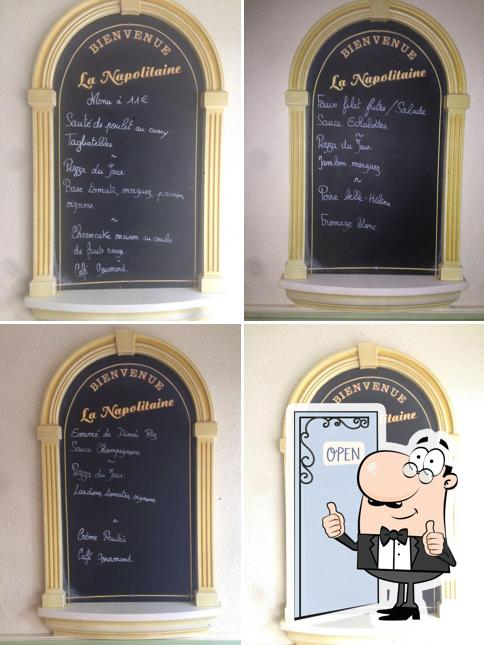 BIENVENUE
La Napolitaine
Menu à 11€
Sauté de poulet au curry
Tagliatelles
~
Pizza du Jour:
Base tomate, merguez, poivrons,
oignons.
~
Cheesecake maison au coulis
de fruits rouge.
Café Gourmand.
BIENVENUE
La Napolitaine
Faux filet frites / Salade
Sauce Echalottes
~
Pizza du Jour:
Jambon, merguez.
~
Poire belle-Hélène
Fromage blanc.
BIENVENUE
La Napolitaine
Emincé de Dinde Riz
Sauce Champignons
~
Pizza du Jour:
Lardons, tomates, oignons
~
Crème Brulée
Café Gourmand
BIENVENUE
OPEN